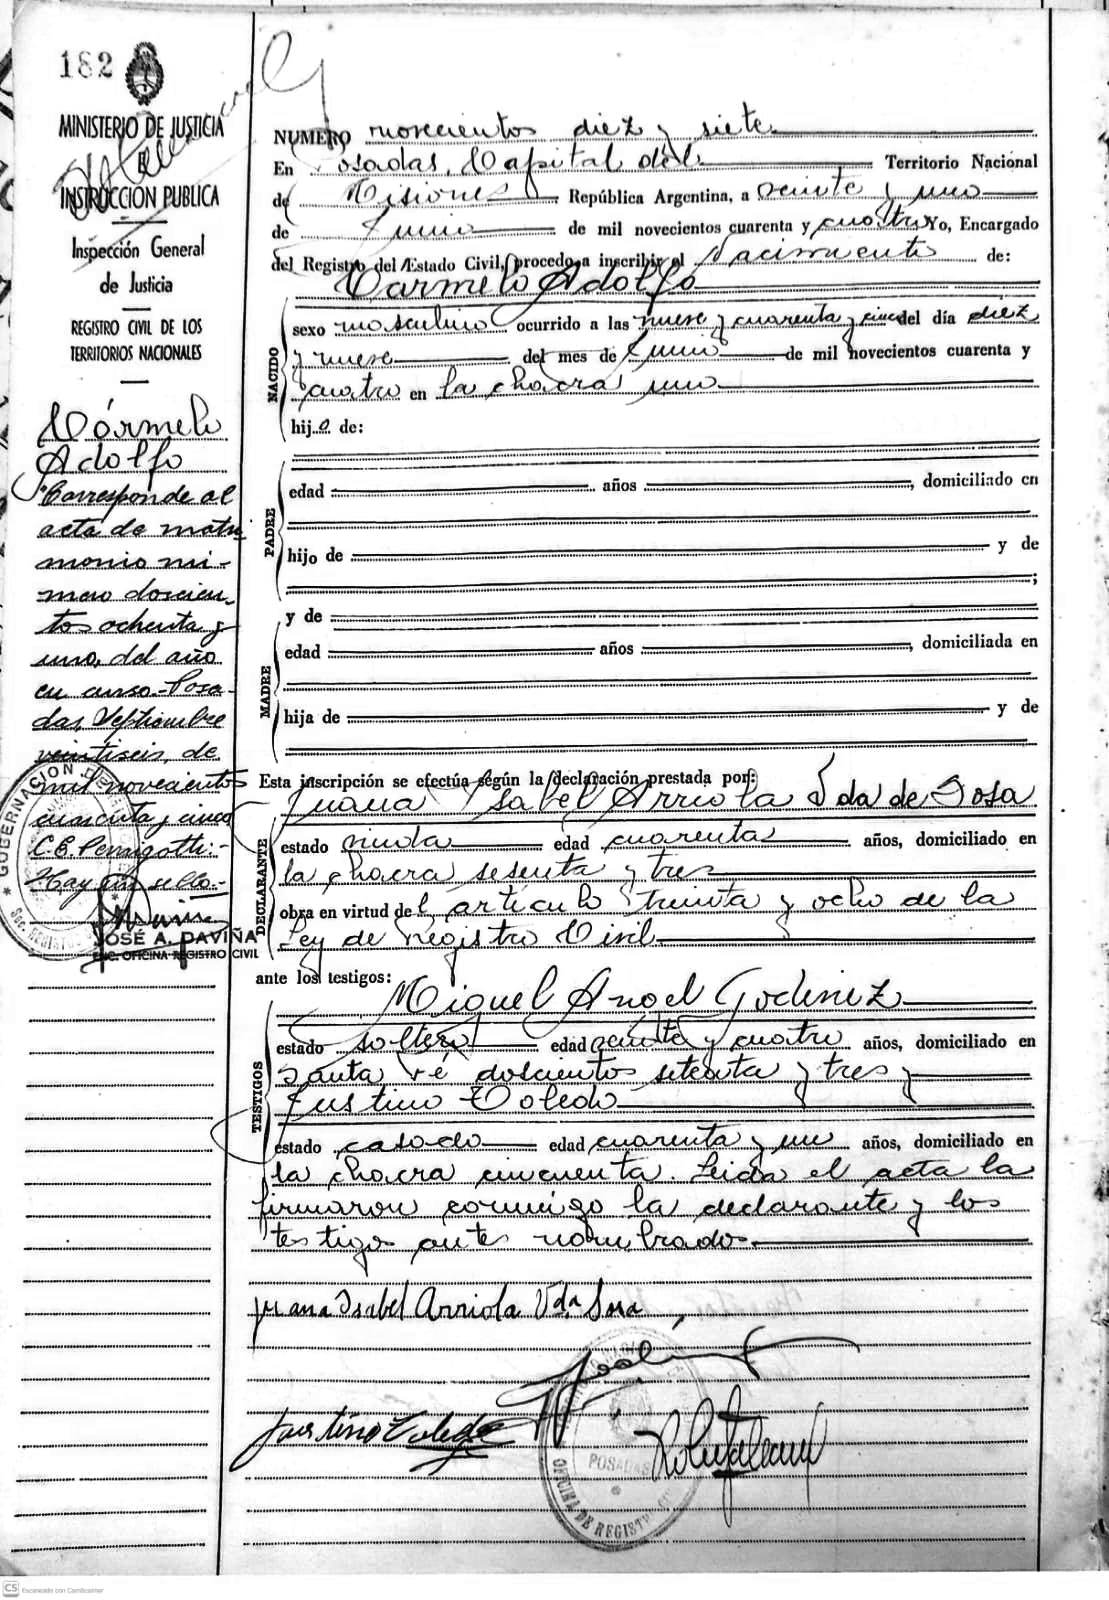 182
MINISTERIO DE JUSTICIA
E
INSTRUCCIÓN PUBLICA
Inspección General
de Justicia
REGISTRO CIVIL DE LOS
TERRITORIOS NACIONALES
Cármelo
Adolfo
"Corresponde al
acta de matri
monio nú-
mero doscien-
tos ochenta y
uno, del año
en curso.-Posa-
das, Septiembre
veintiseis, de
mil novecientos
cincuenta y cinco
C.E.
Hay un sello.-
GOBERNACION DE
JOSÉ A. DAVIÑA
ENC. OFICINA REGISTRO CIVIL
NUMERO novecientos diez y siete
En Posadas, Capital del Territorio Nacional
de Misiones, República Argentina, a veinte y uno
de Junio de mil novecientos cuarenta y cuatro Yo, Encargado
del Registro del Estado Civil, procedo a inscribir el Nacimiento de:
Carmelo Adolfo
NACIDO
sexo masculino ocurrido a las nueve y cuarenta y cinco del día diez
y nueve del mes de Junio de mil novecientos cuarenta y
cuatro en la chacra uno
hijo de:
PADRE
edad años , domiciliado en
hijo de y de
;
MADRE
y de
edad años , domiciliada en
hija de y de
Esta inscripción se efectúa según la declaración prestada por:
Juana Isabel Arriola Vda de Sosa
DECLARANTE
estado viuda edad cuarenta años, domiciliado en
la chacra sesenta y tres
obra en virtud del artículo treinta y ocho de la
Ley de Registro Civil
ante los testigos:
Miguel Angel Godinez
TESTIGOS
estado soltero edad veinte y cuatro años, domiciliado en
Santa Fé doscientos setenta y tres y
Justino Toledo
estado casado edad cuarenta y un años, domiciliado en
la chacra cincuenta. Leida el acta la
firmaron conmigo la declarante y los
testigos antes nombrados.
Juana Isabel Arriola Vda Sosa
Justino Toledo
POSADAS
OFICINA DE REGISTRO
CS Escaneado con CamScanner